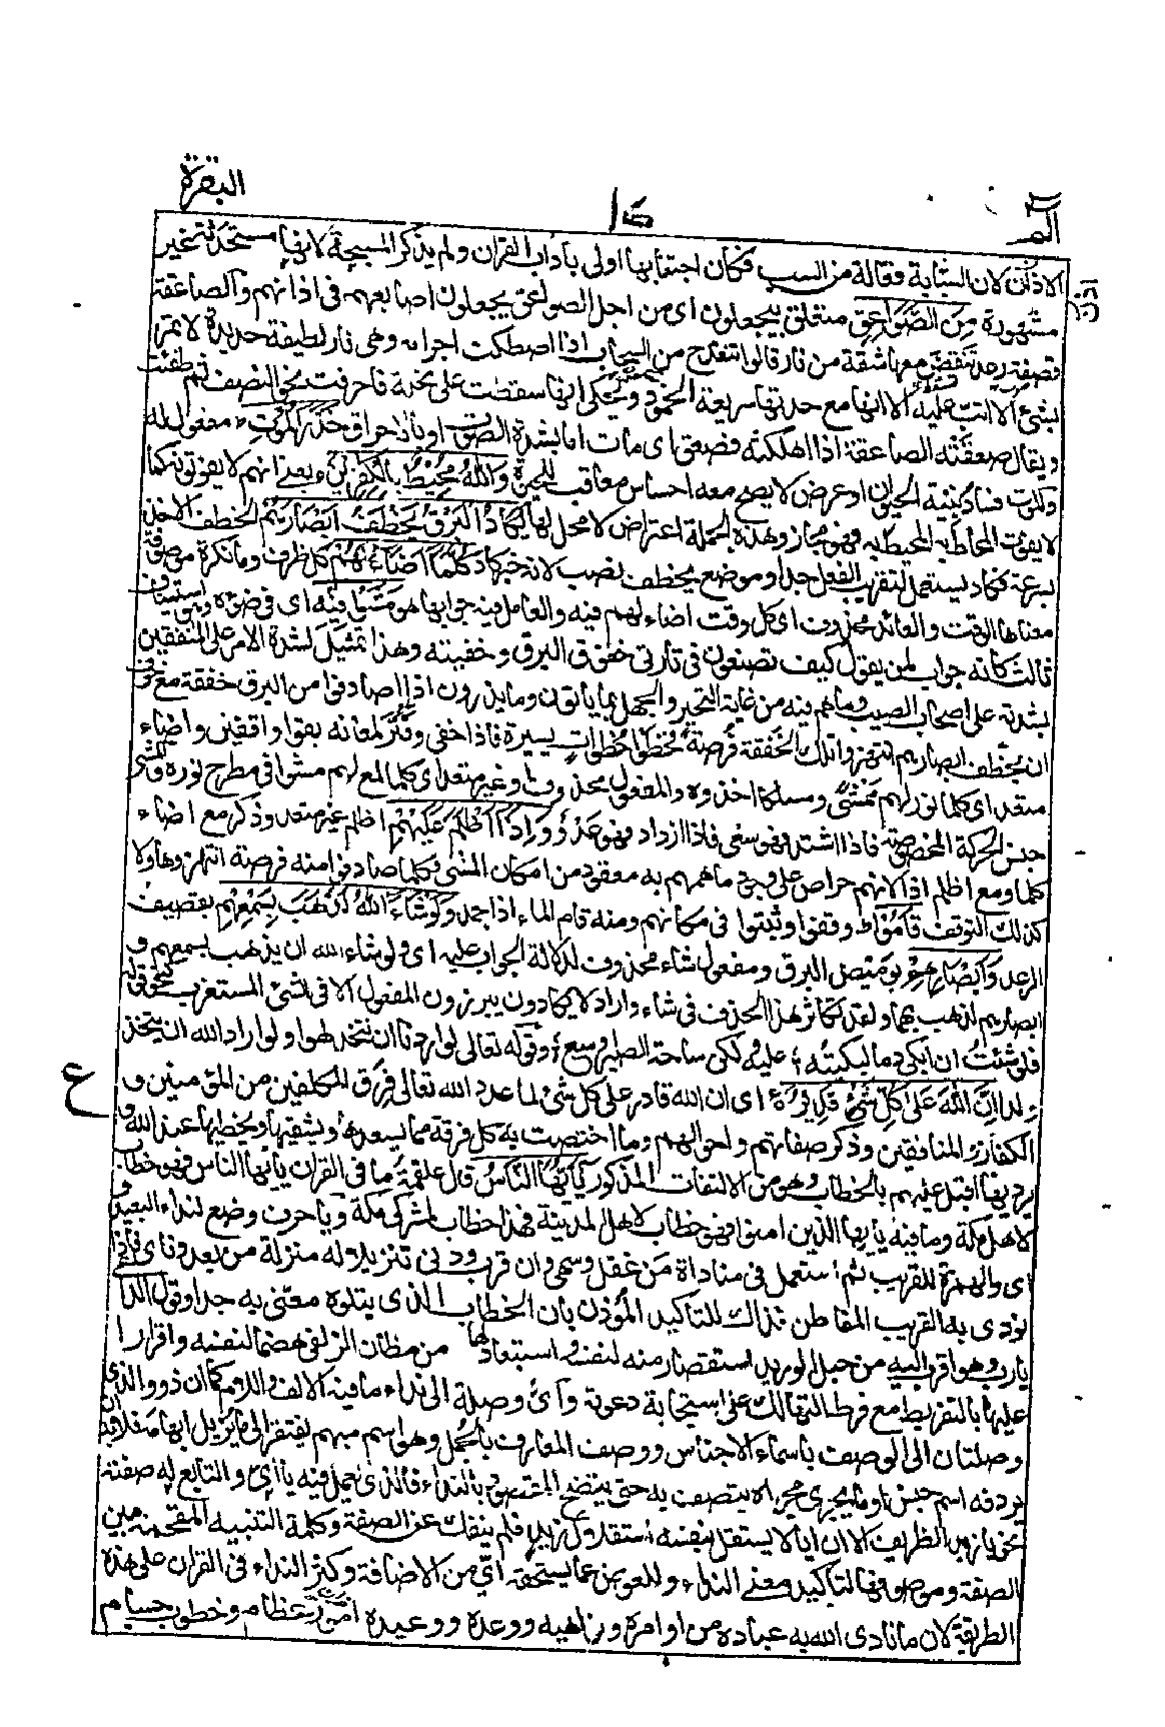 البقرة
١٥
الٓمٓ
الاذن لان السبابة فعالة من السب فكان اجتنابها اولى باداب القران ولم يذكر المسبحة لانها مستحدثة غير
مشهورة مِنَ الصَّوَاعِقِ متعلق بيجعلون اى من اجل الصواعق يجعلون اصابعهم فى اذانهم والصاعقة
قصفة رعد تنقض معها شقة من نار قالوا تنقدح من السحاب اذا اصطكت اجرامه وهى نار لطيفة حديدة لا تمر
بشئ الا اتت عليه الا انها مع حدتها سريعة الخمود ويحكى انها سقطت على نخلة فاحرقت نحو النصف ثم طفئت
ويقال صعقته الصاعقة اذا اهلكته فصعق اى مات اما بشدة الصوت او بالاحراق حَذَرَ الْمَوْتِ مفعول له
والموت فساد بنية الحيوان او عرض لا يصح معه احساس معاقب للحيوة وَاللهُ مُحِيْطٌ بِالْكٰفِرِيْنَ يعنى انهم لا يفوتونه كما
لا يفوت المحاط به المحيط به فهو مجاز وهذه الجملة اعتراض لا محل لها يَكَادُ الْبَرْقُ يَخْطَفُ اَبْصَارَهُمْ الخطف الاخذ
بسرعة وكاد يستعمل لتقريب الفعل جدا وموضع يخطف نصب لانه خبر كاد كُلَّمَا اَضَاءَ لَهُمْ كل ظرف وما نكرة موصوفة
معناها الوقت والعائد محذوف اى كل وقت اضاء لهم فيه والعامل فيه جوابها هو مَّشَوْا فِيْهِ اى فى ضوئه وهو استيناف
ثالث كانه جواب لمن يقول كيف تصنعون فى تارتى خفوق البرق وخفيته وهذا تمثيل لشدة الامر على المنفقين
بشدته على اصحاب الصيب وما هم فيه من غاية التحير والجهل بما ياتون وما يذرون اذا صادفوا من البرق خفقة مع خوف
ان يخطف ابصارهم انتهزوا تلك الخفقة فرصة فخطوا خطوات يسيرة فاذا خفى وفتر لمعانه بقوا واقفين واضاء
متعد اى كلما نور لهم ممشى ومسلكا اخذوه والمفعول محذوف او غير متعد اى كلما لمع لهم مشوا فى مطرح نوره والمشى
جنس الحركة المخصوصة فاذا اشتد فهو سعى فاذا ازداد فهو عدو وَاِذَا اَظْلَمَ عَلَيْهِمْ اظلم غير متعد وذكر مع اضاء
كلما ومع اظلم اذا لانهم حراص على وجود ما همهم به معقود من امكان المشى فكلما صادفوا منه فرصة انتهزوها ولا
كذلك التوقف قَامُوْا وقفوا وثبتوا فى مكانهم ومنه قام الماء اذا جمد وَلَوْ شَاءَ اللهُ لَذَهَبَ بِسَمْعِهِمْ بقصيف
الرعد وَاَبْصَارِهِمْ بوميض البرق ومفعول شاء محذوف لدلالة الجواب عليه اى ولو شاء الله ان يذهب بسمعهم و
ابصارهم لذهب بهما ولقد تكاثر هذا الحذف فى شاء واراد لا يكادون يبرزون المفعول الا فى الشئ المستغرب كنحو قوله
فلو شئت ان ابكى دما لبكيته ؛ عليه ولكن ساحة الصبر اوسع ؛ وقوله تعالى لو اردنا ان نتخذ لهوا ولو اراد الله ان يتخذ
ولدا اِنَّ اللهَ عَلٰى كُلِّ شَىْءٍ قَدِيْرٌ اى ان الله قادر على كل شئ لما عدد الله تعالى فرق المكلفين من المؤمنين و
ع
الكفار والمنافقين وذكر صفاتهم واحوالهم وما اختصت به كل فرقة مما يسعدها ويشقيها ويحظيها عند الله و
يرديها اقبل عليهم بالخطاب وهو من الالتفات المذكور يٰاَيُّهَا النَّاسُ قال علقمة ما فى القران يايها الناس فهو خطاب
لاهل مكة وما فيه يايها الذين امنوا فهو خطاب لاهل المدينة فهذا خطاب لمشركى مكة ويا حرف وضع لنداء البعيد و
اى والهمزة للقريب ثم استعمل فى مناداة من غفل وسهى وان قرب ودنى تنزيلا له منزلة من بعد ونأى فاذا
نودى به القريب المقاطن فذاك للتاكيد المؤذن بان الخطاب الذى يتلوه معنى به جدا وقول الداعى
يارب وهو اقرب اليه من حبل الوريد استقصار منه لنفسه واستبعاد لها من مظان الزلفى هضما لنفسه واقرارا
عليها بالتفريط مع فرط التهالك على استجابة دعوته واىّ وصلة الى نداء ما فيه الالف واللام كما ان ذو والذى
وصلتان الى الوصف باسماء الاجناس ووصف المعارف بالجمل وهو اسم مبهم يفتقر الى ما يزيل ابهامه فلابد ان
يردفه اسم جنس او ما يجرى مجراه يتصف به حتى يتضح المقصود بالنداء فالذى يعمل فيه يا اىّ والتابع له صفته
نحو يا زيد الظريف الا ان ايا لا يستقل بنفسه استقلال زيد فلم ينفك عن الصفة وكلمة التنبيه المقحمة بين
الصفة وموصوفها لتاكيد معنى النداء وللعوض عما يستحقه اىّ من الاضافة وكثر النداء فى القران على هذه
الطريقة لان ما نادى الله به عباده من اوامره ونواهيه ووعده ووعيده امور عظام وخطوب جسام